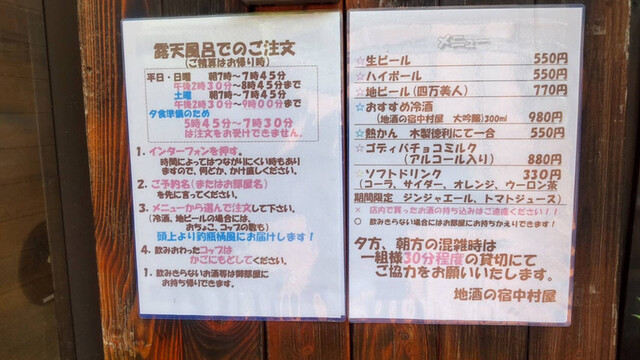 露天風呂でのご注文
(ご精算はお帰り時)
平日・日曜 朝7時~7時45分
午後2時30分~8時45分まで
土曜 朝7時~7時45分
午後2時30分~9時00分まで
夕食準備のため
5時45分~7時30分
は注文をお受けできません。
1. インターフォンを押す。
時間によってはつながりにくい時もあり
ますので、何どか、かけ直しください。
2. ご予約名(またはお部屋名)
を先に言ってください。
3. メニューから選んで注文して下さい。
(冷酒、地ビールの場合には、
おちょこ、コップの数も)
頭上より釣瓶桶風にお届けします!
4. 飲みおわったコップは
かごにもどしてください。
1. 飲みきらないお酒等は御部屋に
お持ち帰りできます。
メニュー
☆生ビール 550円
☆ハイボール 550円
☆地ビール(四万美人) 770円
☆おすすめ冷酒
(地酒の宿中村屋 大吟醸)300ml 980円
☆熱かん 木製徳利にて一合 550円
☆ゴディバチョコミルク
(アルコール入り) 880円
☆ソフトドリンク 330円
(コーラ、サイダー、オレンジ、ウーロン茶
期間限定 ジンジャエール、トマトジュース)
× 店内で買ったお酒の持ち込みはご遠慮ください!!
○ 飲みきらない場合にはお部屋にお持ちかえりできます!
夕方、朝方の混雑時は
一組様30分程度の貸切にて
ご協力をお願いいたします。
地酒の宿中村屋